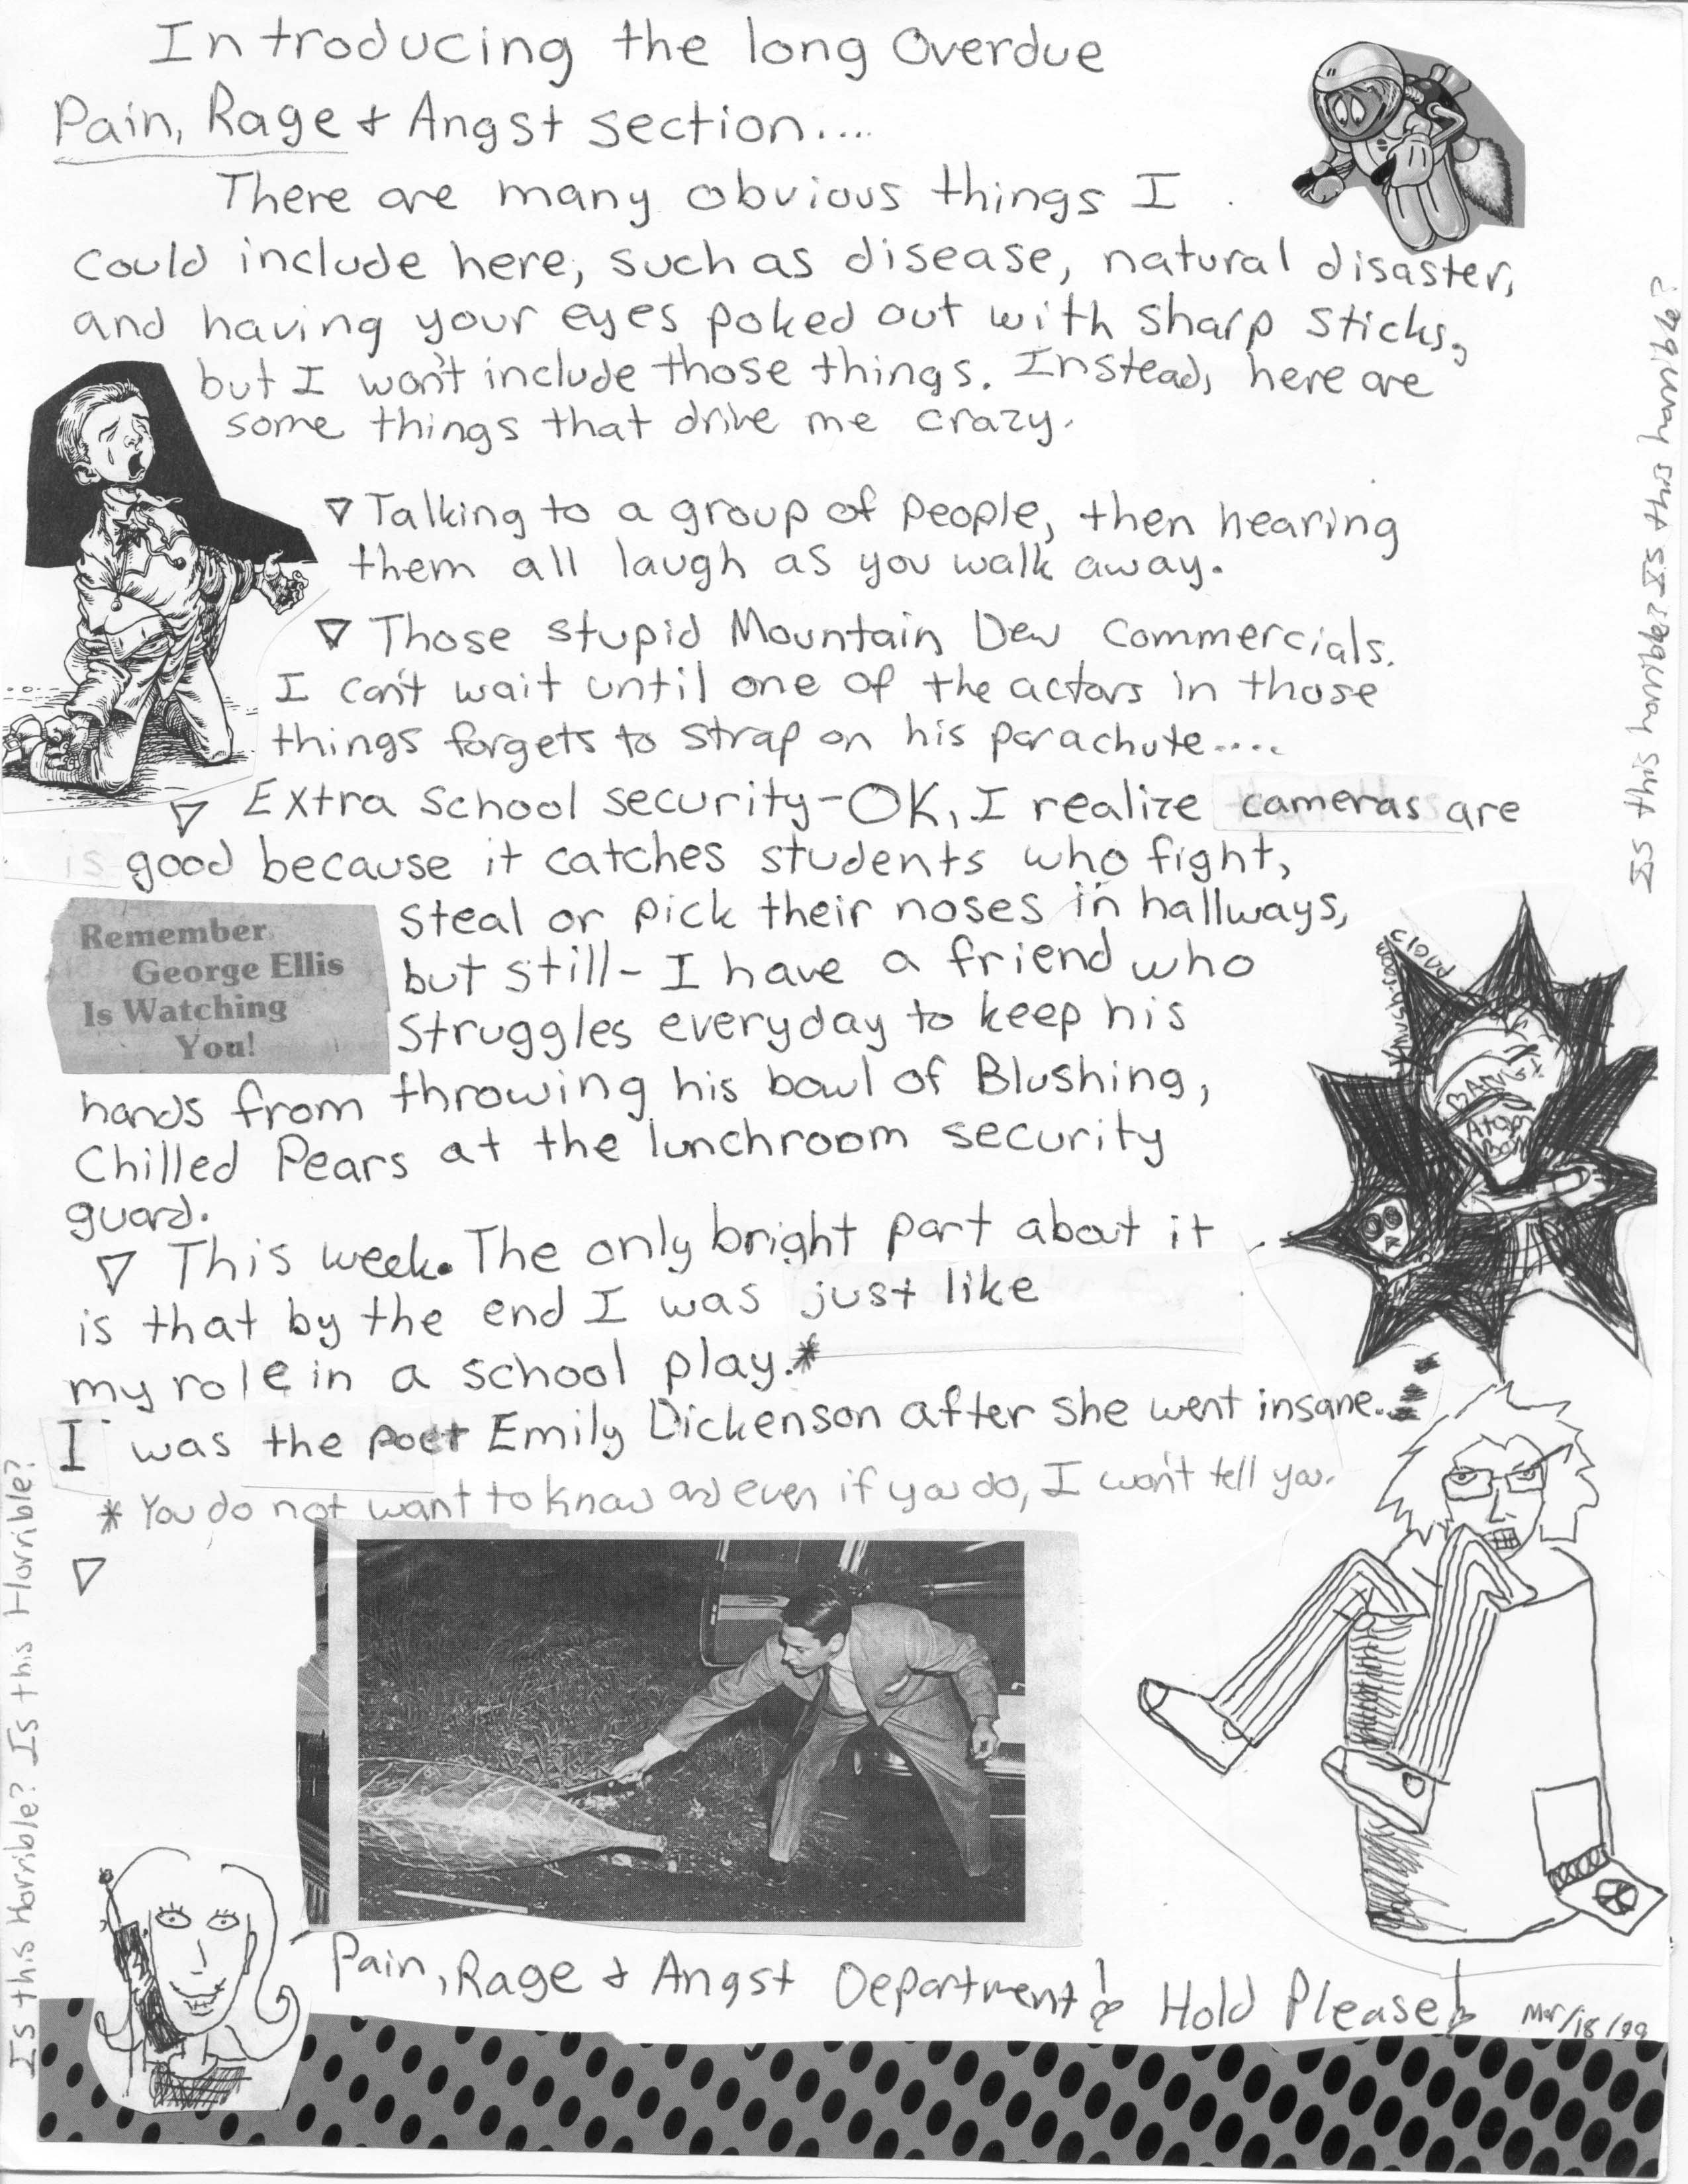 Introducing the long Overdue
Pain, Rage & Angst section....
There are many obvious things I
could include here, such as disease, natural disaster,
and having your eyes poked out with sharp sticks,
but I won't include those things. Instead, here are
some things that drive me crazy.
▽ Talking to a group of people, then hearing
them all laugh as you walk away.
▽ Those stupid Mountain Dew commercials.
I can't wait until one of the actors in those
things forgets to strap on his parachute....
▽ Extra school security-OK, I realize cameras are
is good because it catches students who fight,
steal or pick their noses in hallways,
but still- I have a friend who
struggles everyday to keep his
hands from throwing his bowl of Blushing,
Chilled Pears at the lunchroom security
guard.
Remember
George Ellis
Is Watching
You!
▽ This week. The only bright part about it
is that by the end I was just like
my role in a school play.*
I was the poet Emily Dickenson after she went insane..
* You do not want to know and even if you do, I won't tell you.
▽
Pain, Rage & Angst Department! Hold Please!
Mar/18/99
Is this Horrible? Is this Horrible?
Is this funny? Is this
Mush-room
cloud
BANG!
Atom